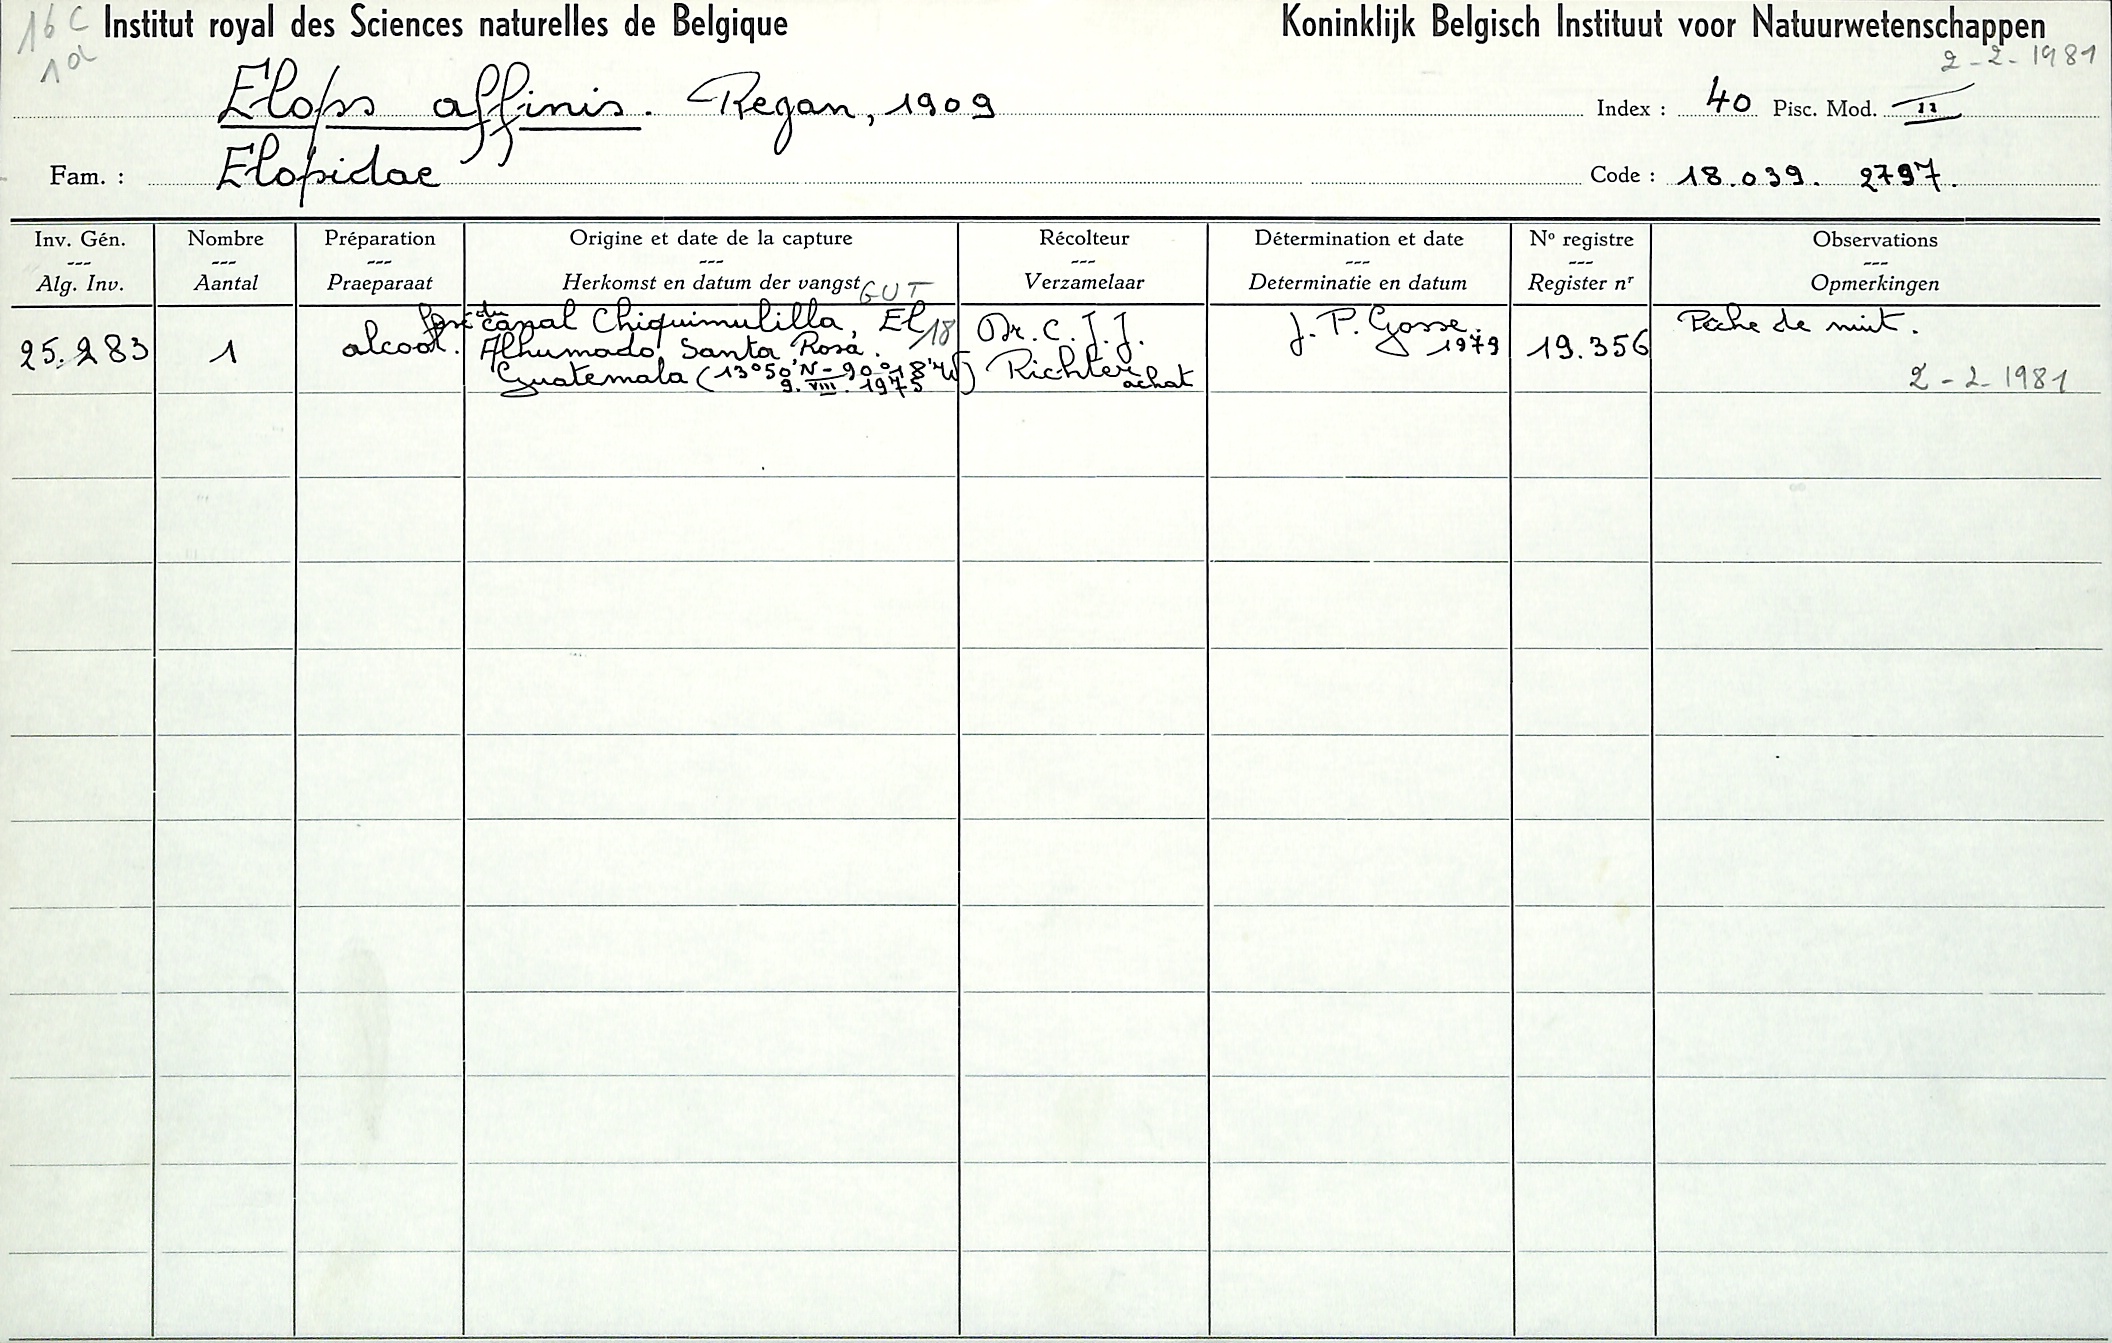 16 C Institut royal des Sciences naturelles de Belgique Koninklijk Belgisch Instituut voor Natuurwetenschappen
1 a 2-2-1981
Elops affinis. Regan, 1909 Index : 40 Pisc. Mod. II
Fam. : Elopidae Code : 18.039. 2797.
Inv. Gén. Nombre Préparation Origine et date de la capture Récolteur Détermination et date No registre Observations
--- --- --- --- --- --- --- ---
Alg. Inv. Aantal Praeparaat Herkomst en datum der vangst Verzamelaar Determinatie en datum Register nr Opmerkingen
GUT
du canal Chiquimulilla, El 18 Dr. C. J. J. J. P. Gosse. Pêche de nuit.
25.283 1 alcool. Ahumado, Santa Rosa. 1979 19.356
Guatemala (13°50'N-90°18'W) Richter achat 2-2-1981
9.VIII.1975